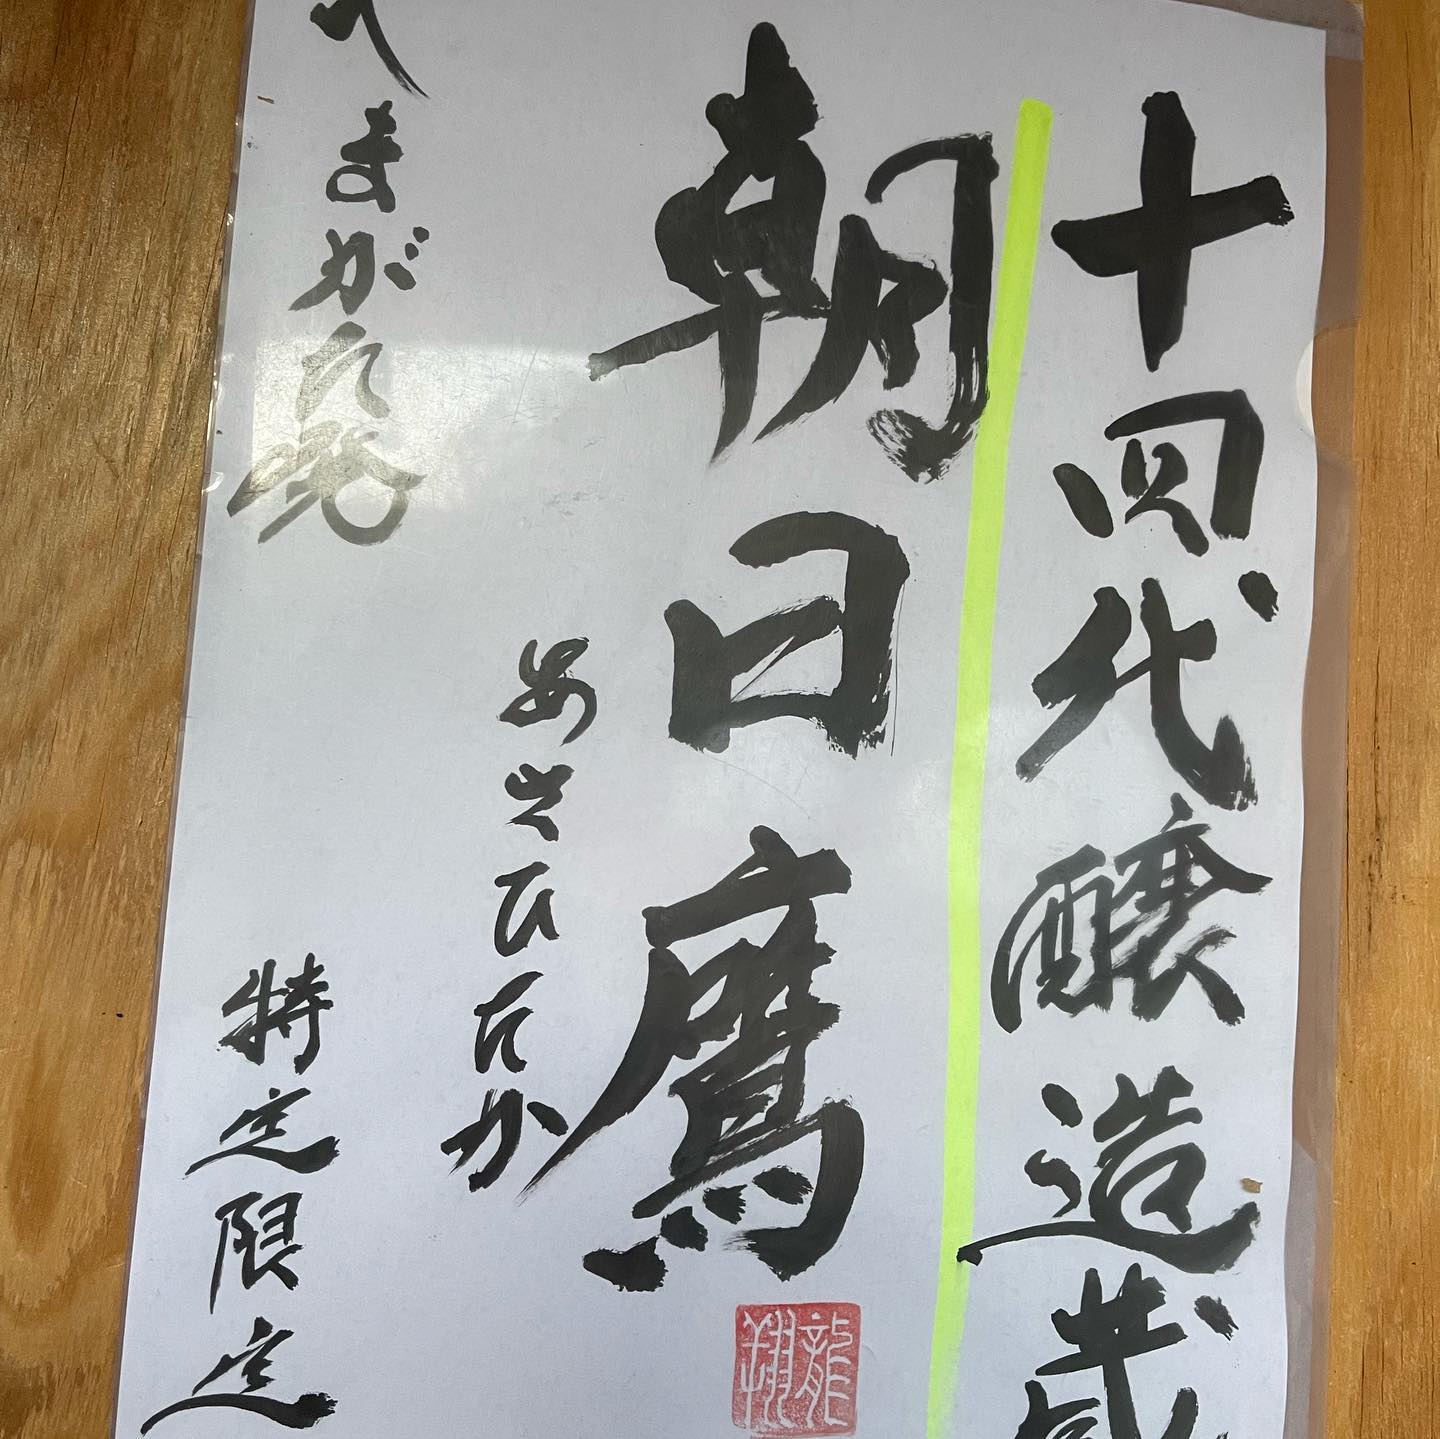 十四代醸造蔵
朝日鷹
龍翔
あさひたか
まがた
特定限定